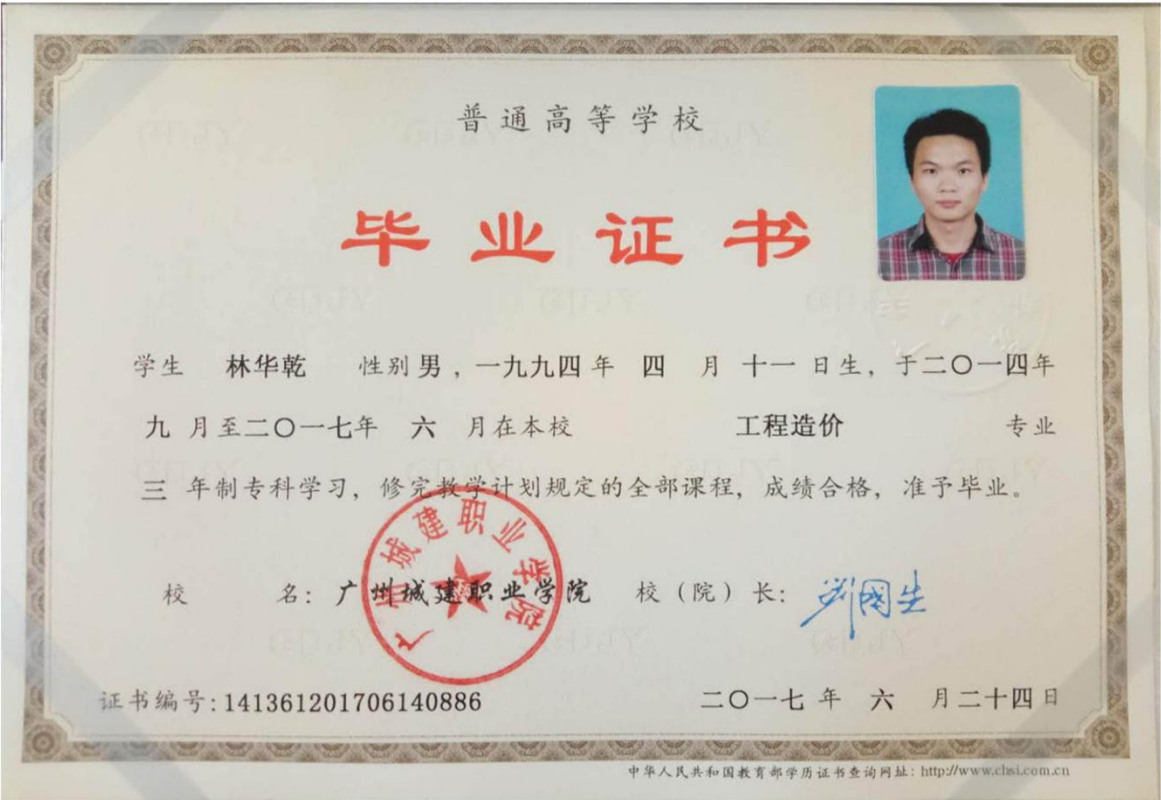 普通高等学校
毕业证书
学生 林华乾 性别 男 ，一九九四 年 四 月 十一 日生，于二〇一四年
九 月至二〇一七年 六 月在本校 工程造价 专业
三 年制专科学习，修完教学计划规定的全部课程，成绩合格，准予毕业。
广州城建职业学院
校 名：广州城建职业学院 校（院）长：刘国生
证书编号：141361201706140886 二〇一七 年 六 月二十四日
中华人民共和国教育部学历证书查询网址：http://www.chsi.com.cn